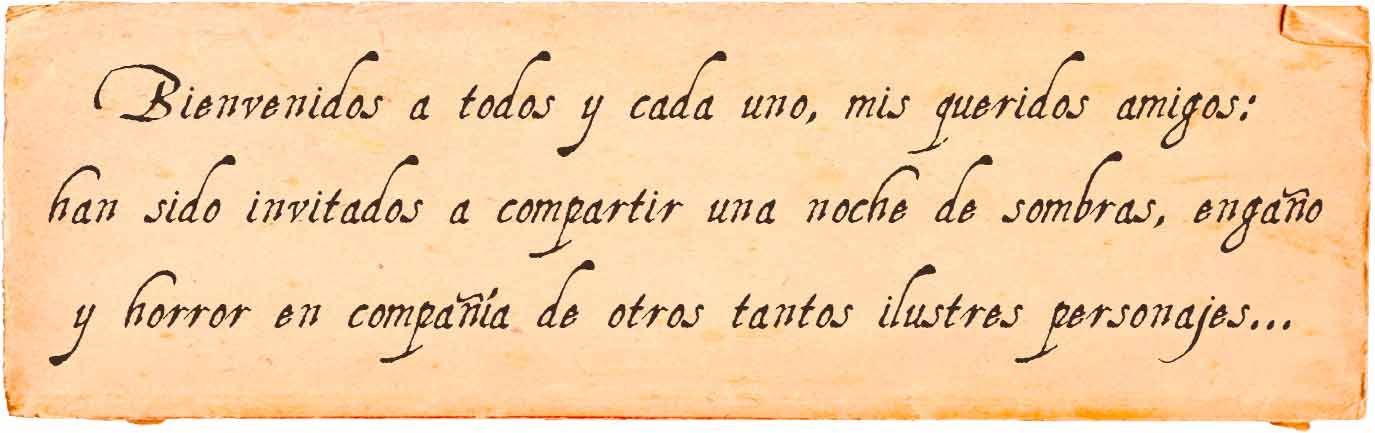 Bienvenidos a todos y cada uno, mis queridos amigos:
han sido invitados a compartir una noche de sombras, engaño
y horror en compañía de otros tantos ilustres personajes...